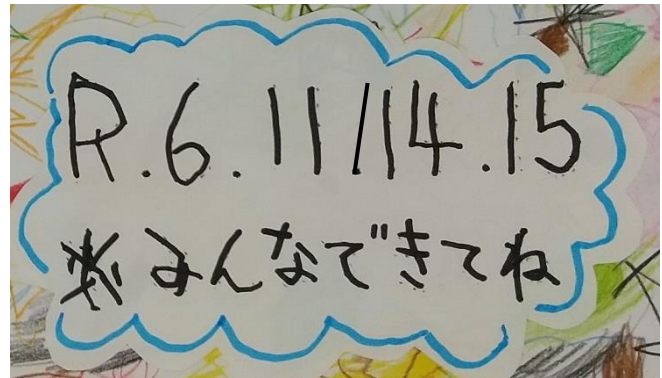 R.6.11/14.15
※みんなできてね